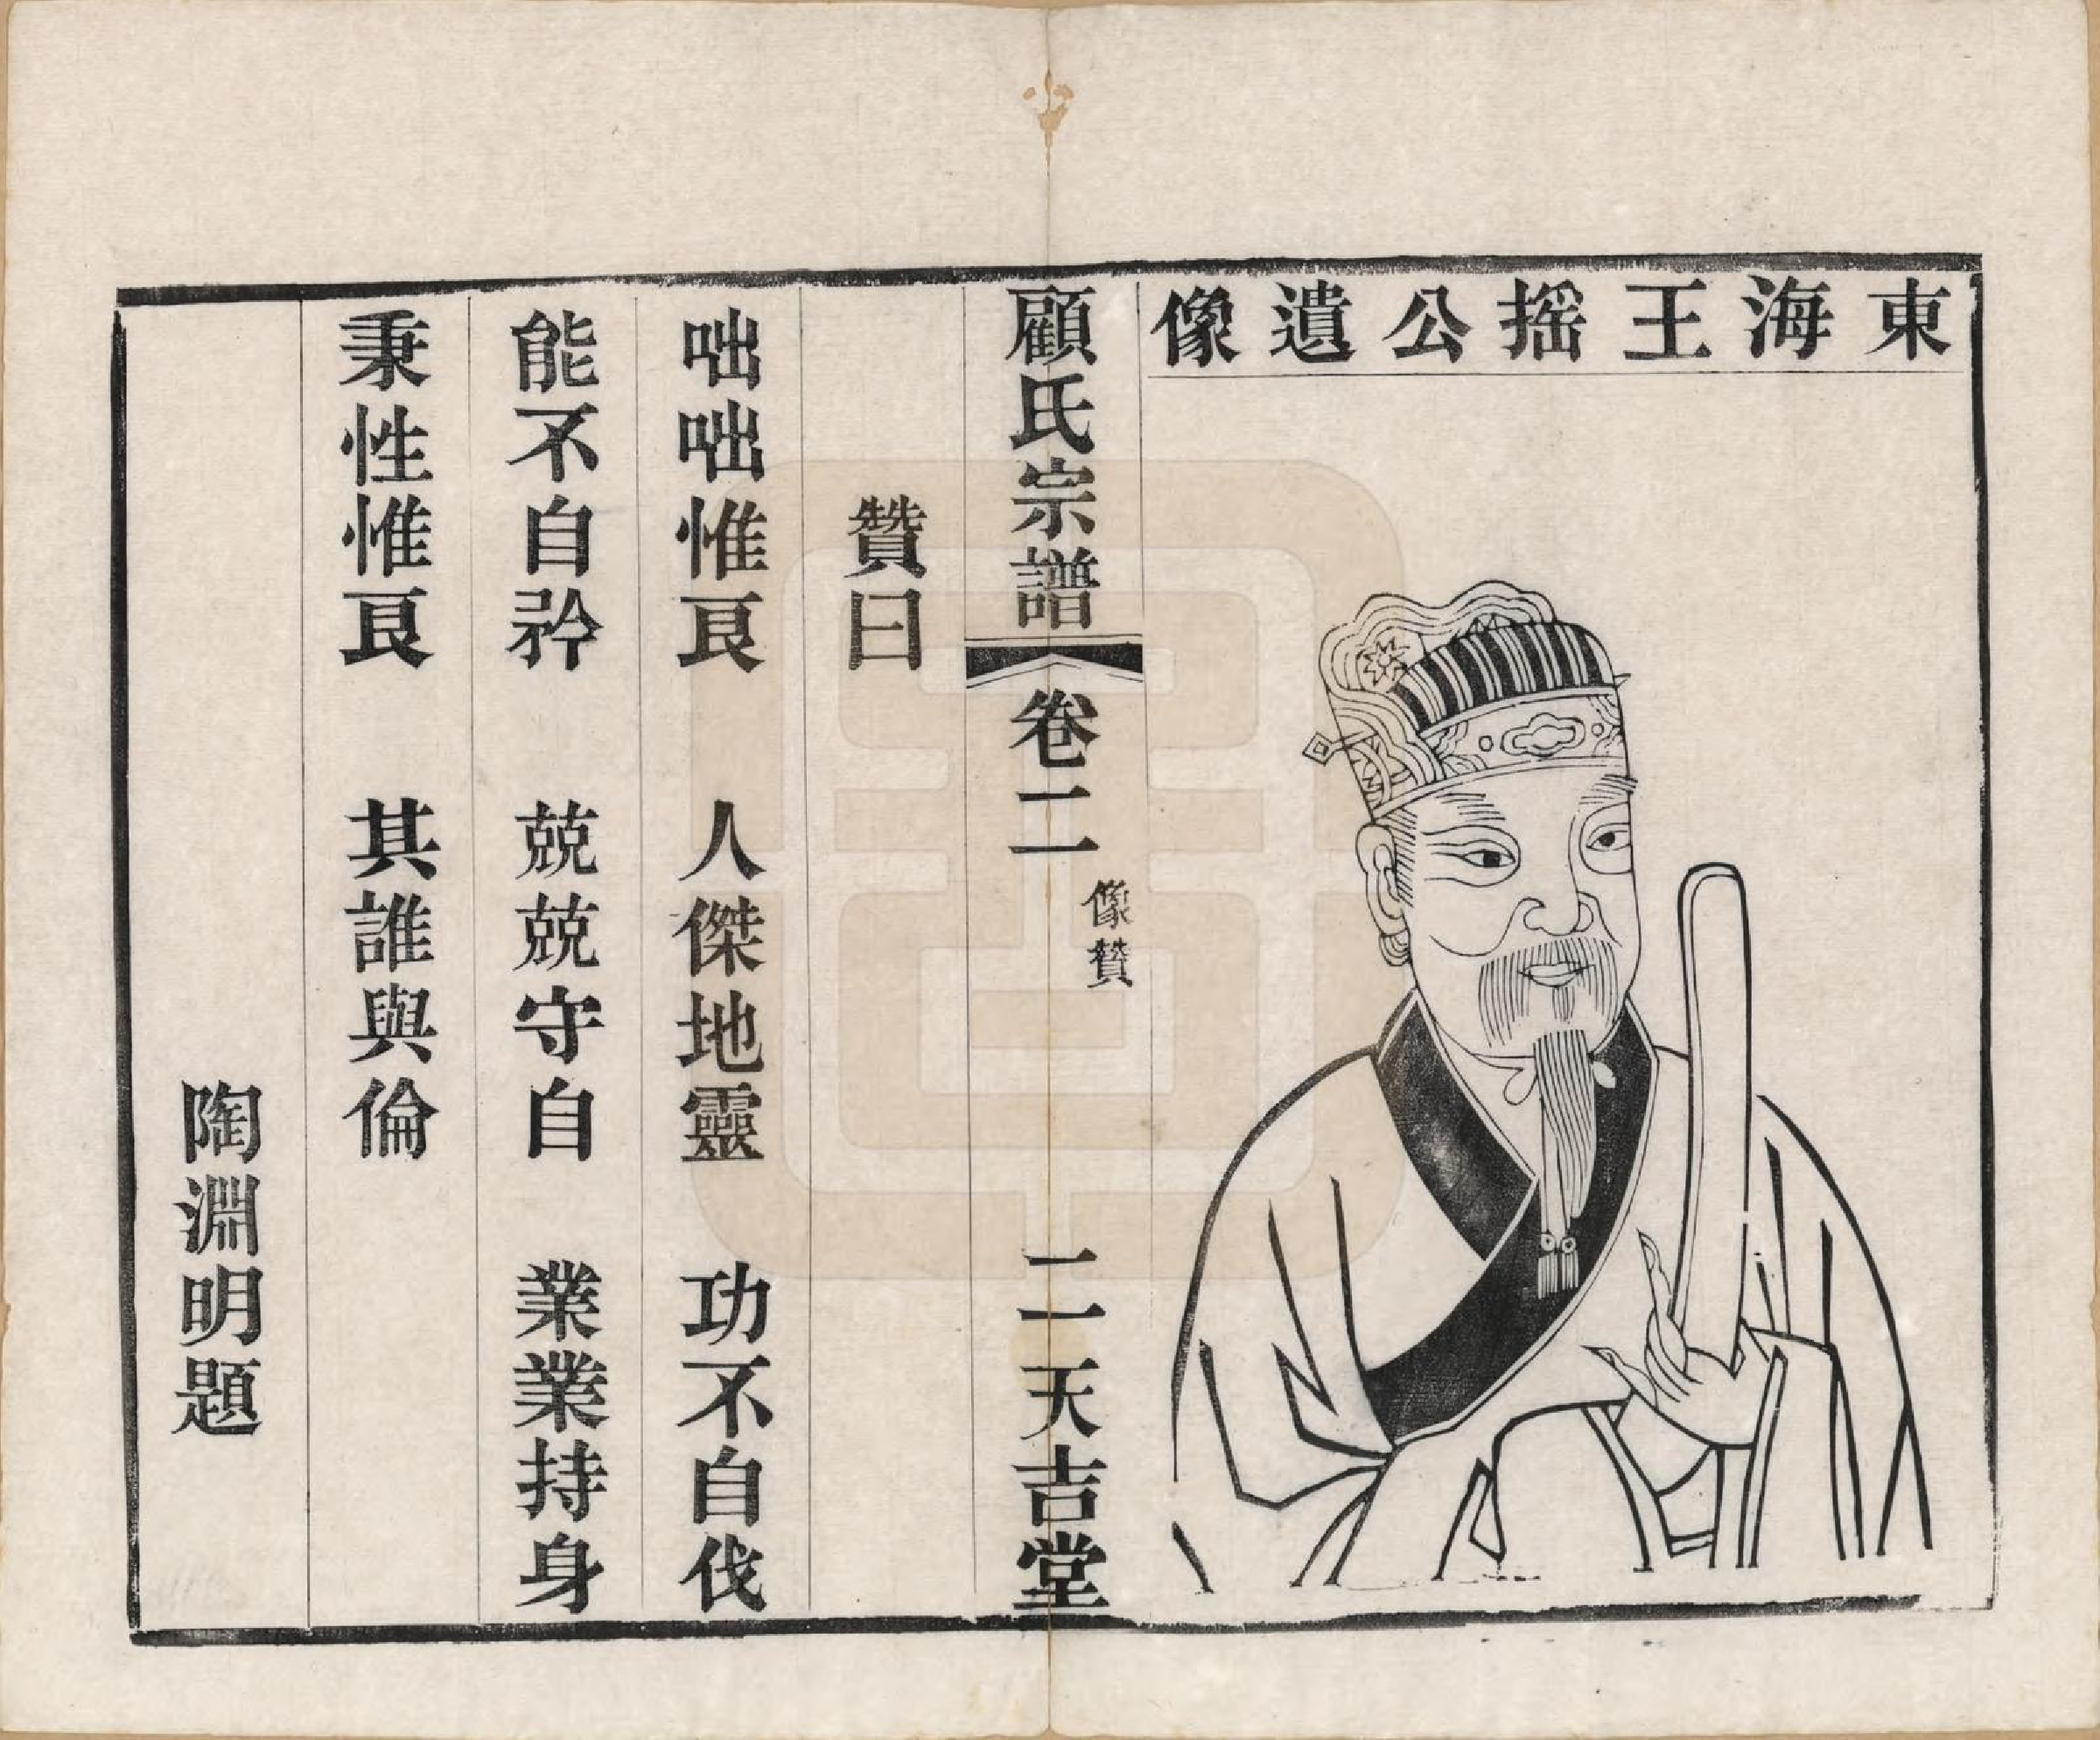 東海王揺公遺像
顧氏宗譜 卷二 像贊 二 天吉堂
贊曰
咄咄惟良 人傑地靈 功不自伐
能不自矜 兢兢守自 業業持身
秉性惟良 其誰與倫
陶淵明題